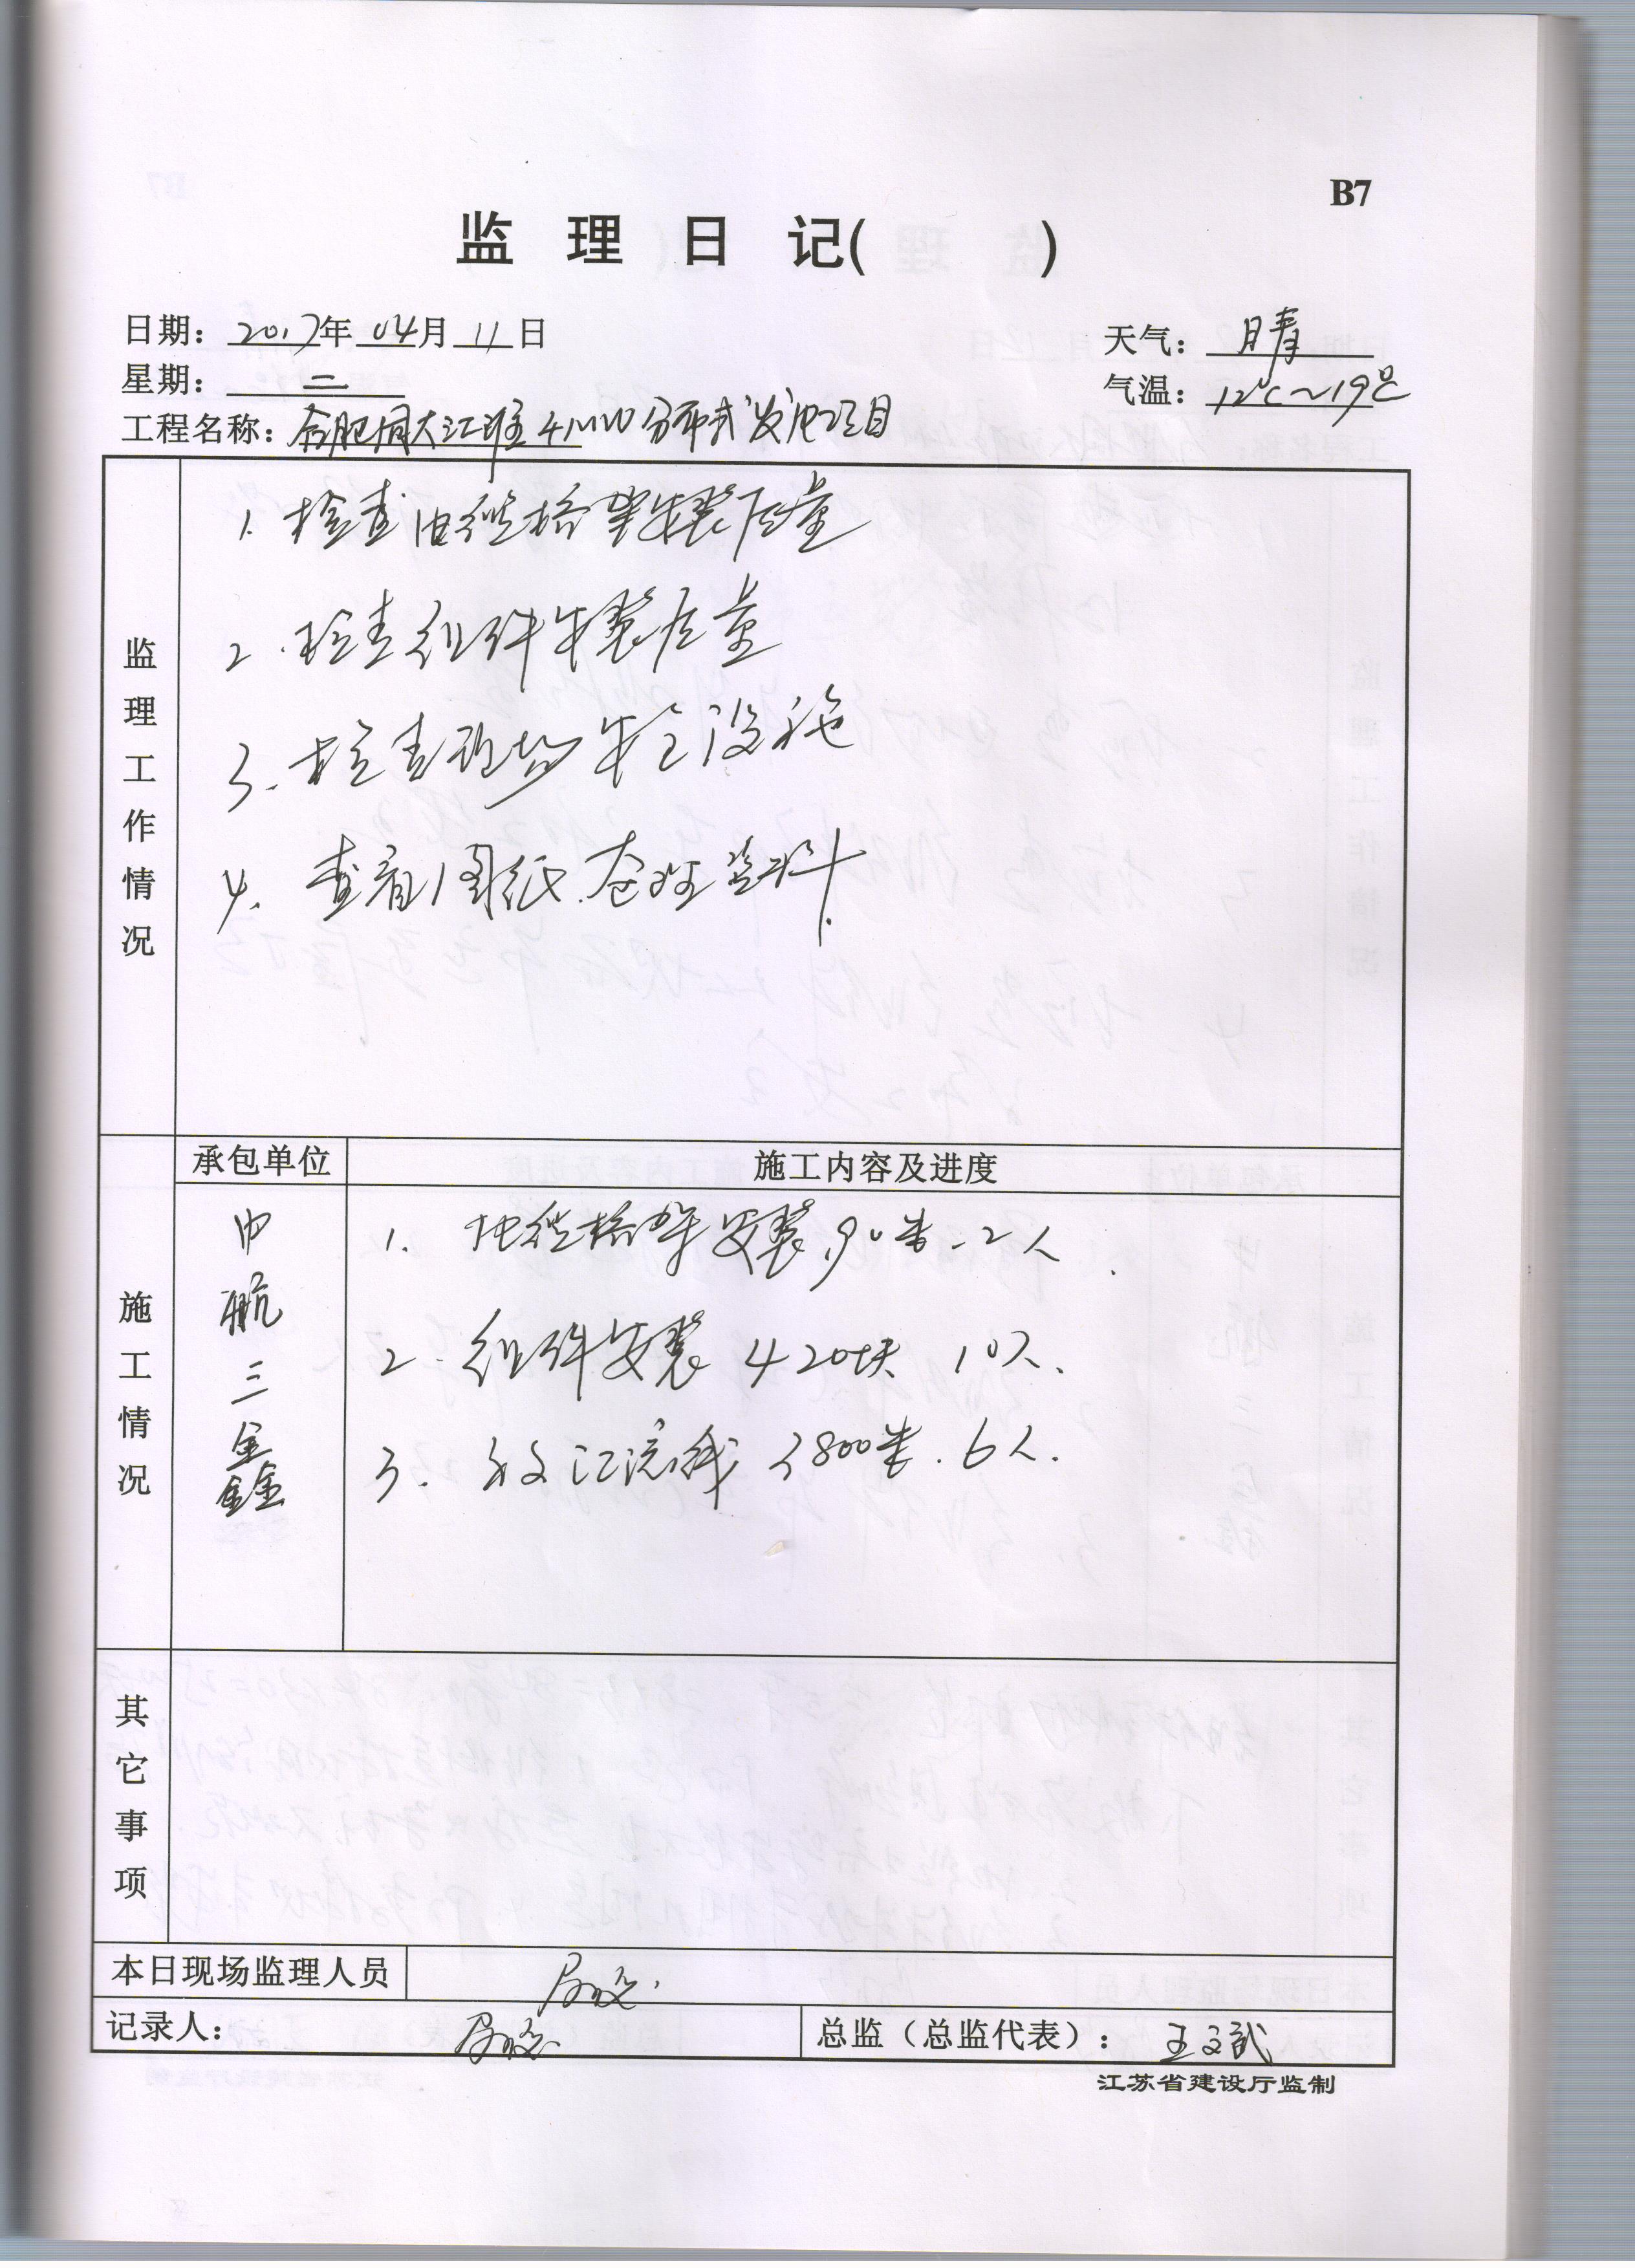 B7
监 理 日 记( )
日期: 2017年 04月 11日
天气: 晴
星期: 二
气温: 12℃~19℃
工程名称: 合肥 大江 4MW分布式发电项目
监理工作情况
1. 检查电缆桥架安装质量
2. 检查组件安装质量
3. 检查现场安全设施
4. 查看图纸. 资料.
承包单位
施工内容及进度
施工情况
中航三鑫
1. 电缆桥架安装 90米. 2人.
2. 组件安装 420块 10人.
3. 放汇流线 3800米. 6人.
其它事项
本日现场监理人员
记录人:
总监(总监代表): 王文武
江苏省建设厅监制